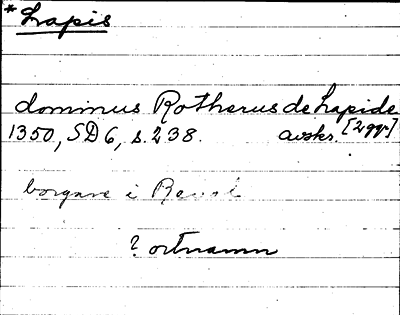 *Lapis
dominus Rotherus de Lapide
1350, SD 6, s. 238. avskr. [2 ggr]
borgare i Reval
? ortnamn